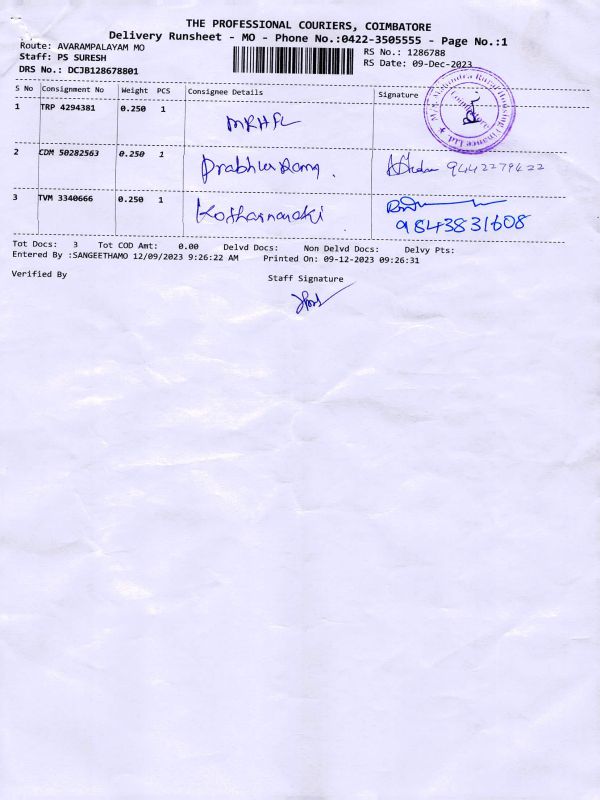 THE PROFESSIONAL COURIERS, COIMBATORE
Delivery Runsheet - MO - Phone No.:0422-3505555 - Page No.:1
Route: AVARAMPALAYAM MO
RS No.: 1286788
Staff: PS SURESH
RS Date: 09-Dec-2023
DRS No.: DCJB128678801
S No Consignment No Weight PCS Consignee Details Signature
1 TRP 4294381 0.250 1 MRHFL
2 CDM 50282563 0.250 1 Prabhu Ram.
3 TVM 3340666 0.250 1
9843831608
Tot Docs: 3 Tot COD Amt: 0.00 Delvd Docs: Non Delvd Docs: Delvy Pts:
Entered By :SANGEETHAMO 12/09/2023 9:26:22 AM Printed On: 09-12-2023 09:26:31
Verified By
Staff Signature